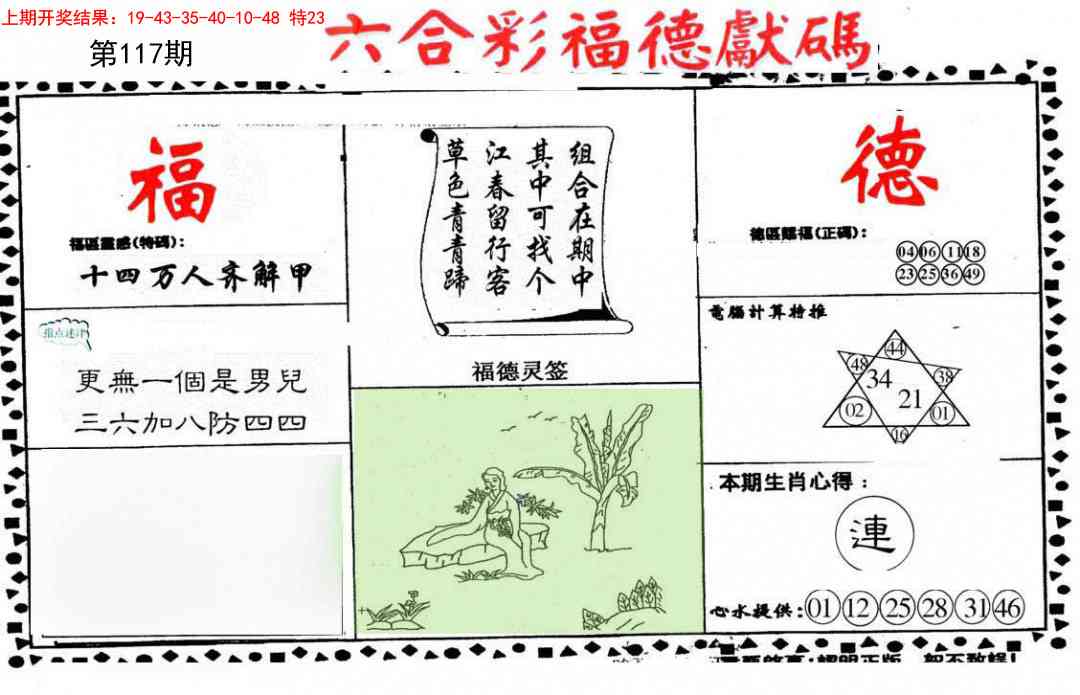 上期开奖结果：19-43-35-40-10-48 特23
第117期
六合彩福德獻碼
福
福區靈感(特碼)：
十四万人齐解甲
指点迷津
更無一個是男兒
三六加八防四四
组合在期中
其中可找个
江春留行客
草色青青蹄
福德灵签
德
德區賜福(正碼)：
04 06 11 18
23 25 36 49
電腦計算特推
44
48 34 38
02 21 01
16
本期生肖心得：
連
心水提供：01 12 25 28 31 46